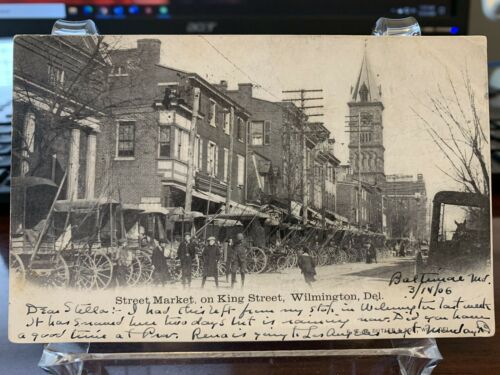 acer
Street Market, on King Street, Wilmington, Del.
Baltimore Md.
3/14/06
Dear Stella:- I had this left from my stop in Wilmington last week
It has snowed here two days but is raining now. Did you have
a good time at Prov. Rena is going to Los Angeles next Monday.